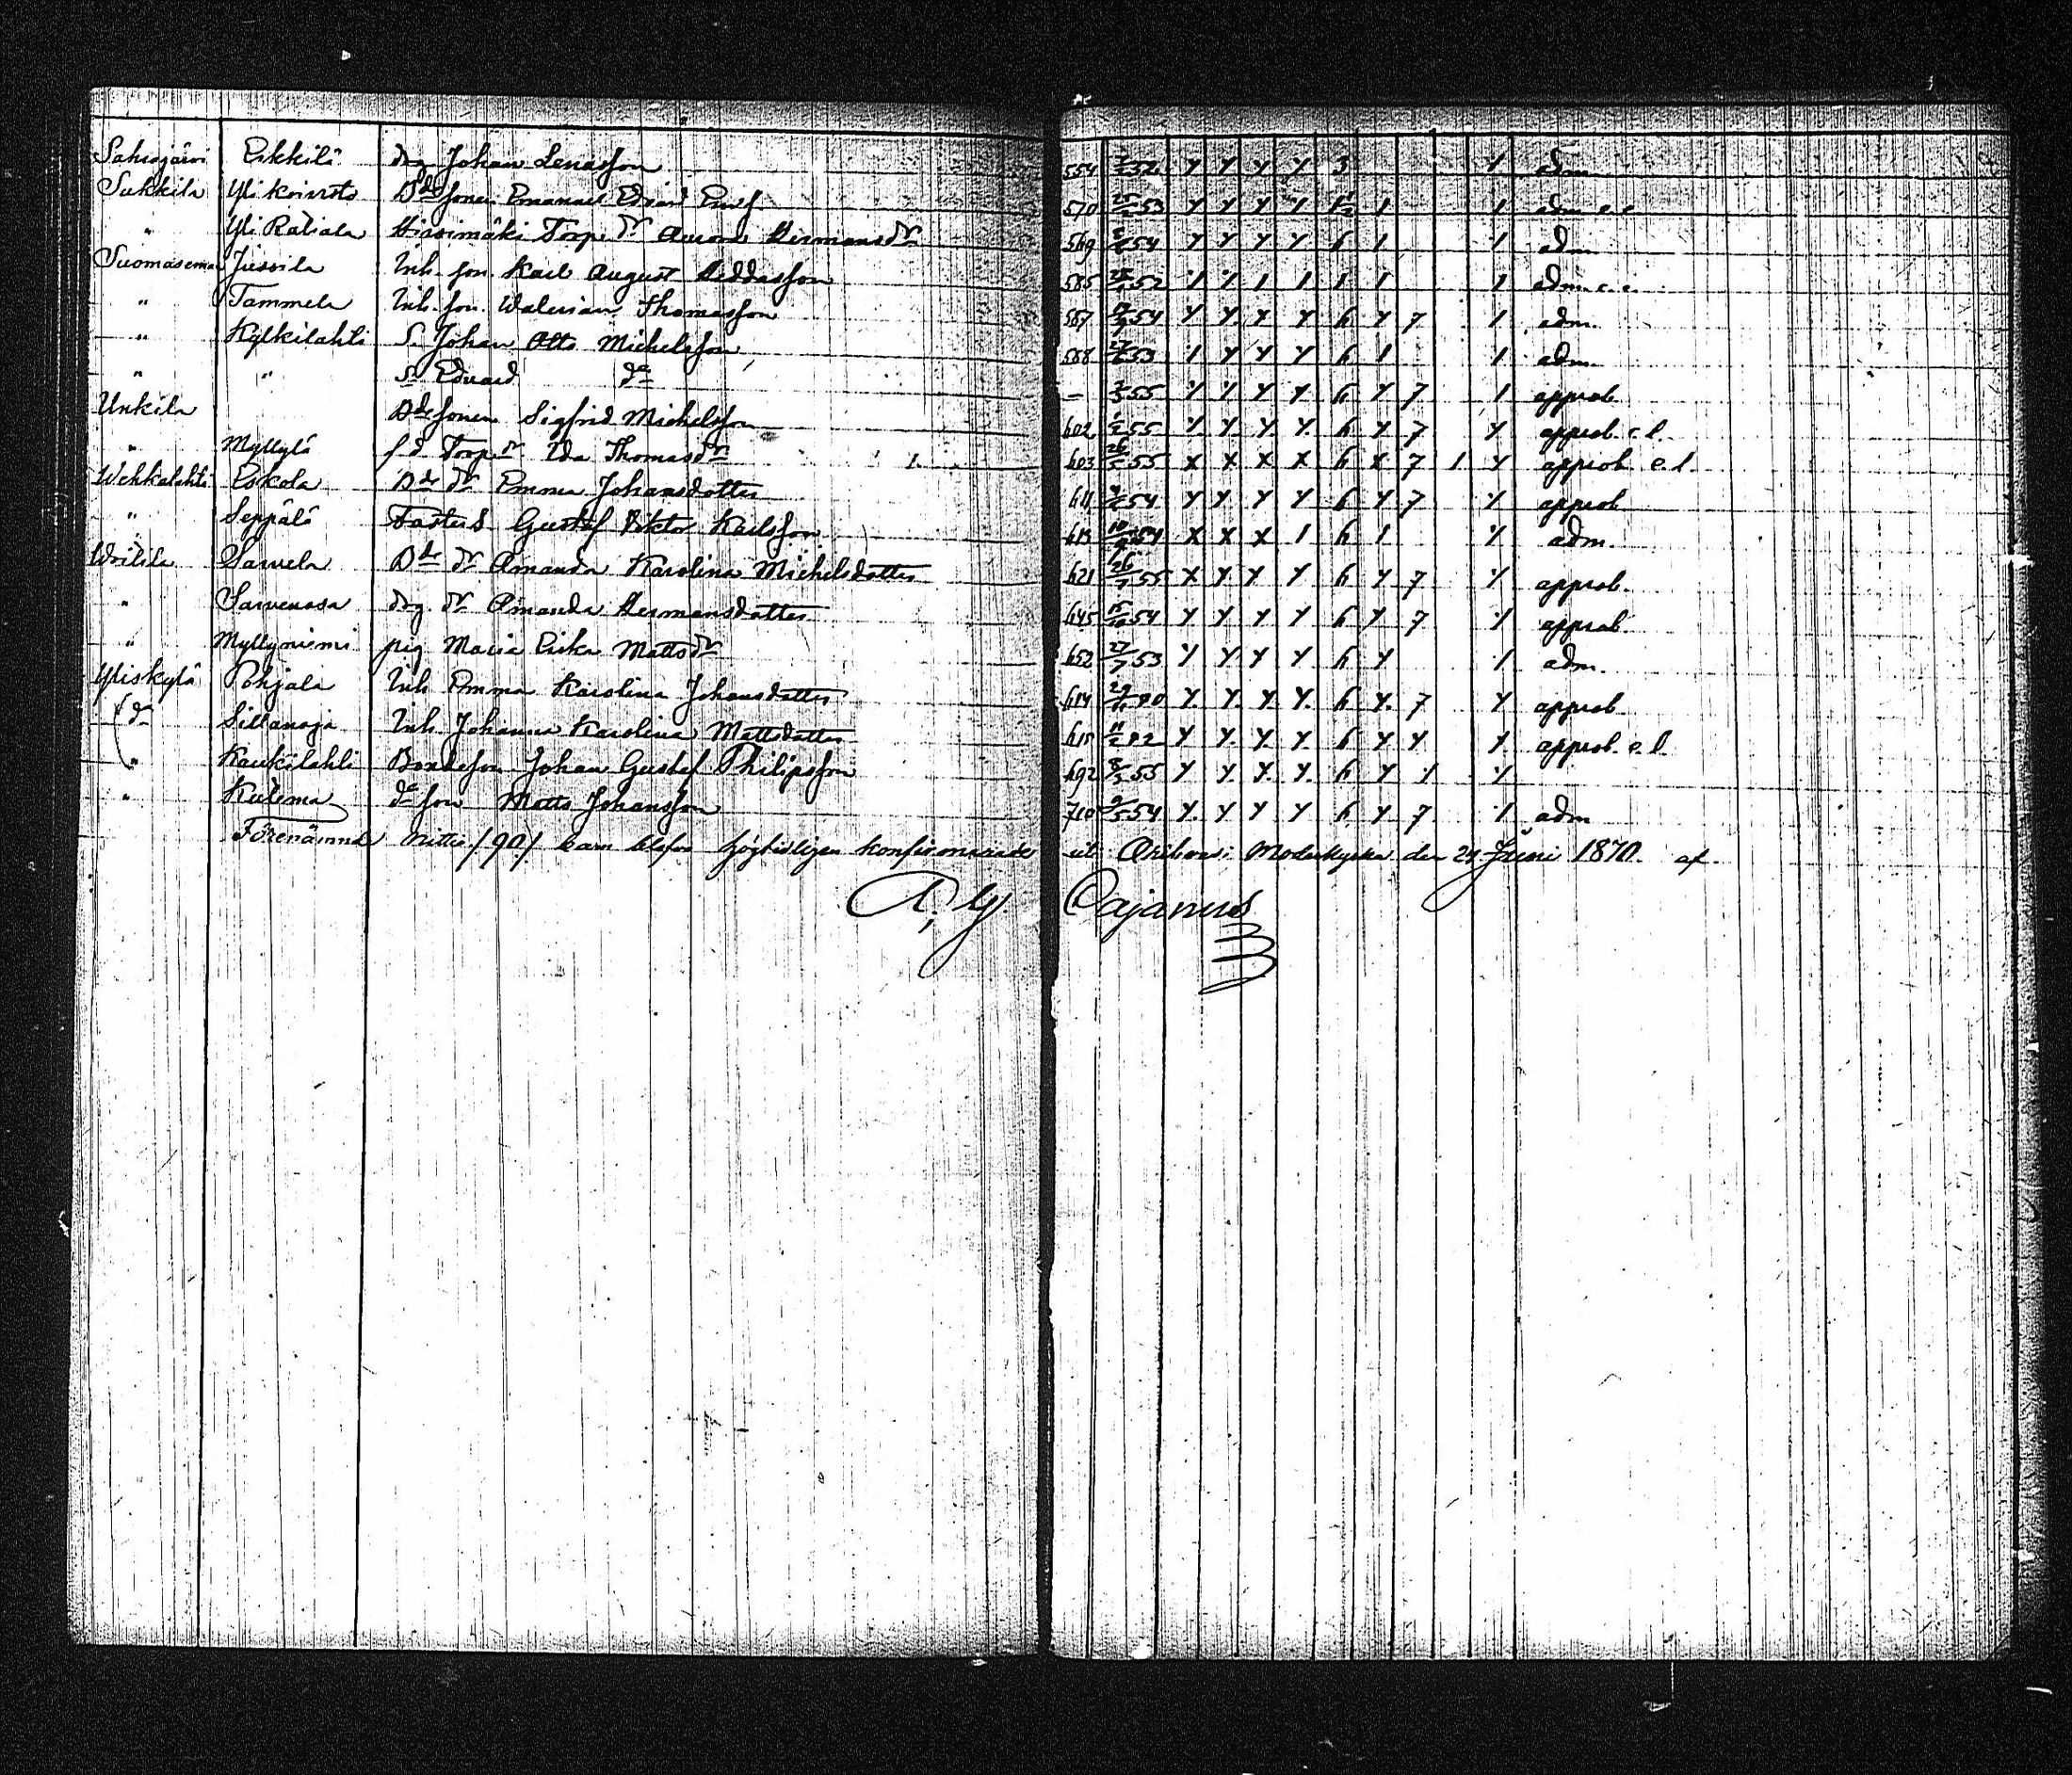 Sahrajärvi Erkkilä drg Johan Lenasson 554 52 Y Y Y Y 3 Y adm
Sukkila Ylikoivisto Bde sonen Emanuel Edvard Em.f 570 25/2 53 Y Y Y 1 1½ 1 1 adm c.c
" Yli Rätiälä Hirsimäki Torp. dr Aurora Hermansdr 569 54 Y Y Y Y 6 1 1 adm
Suomasema Jussila Inh. son Karl August Heddasson 585 52 1 1 1 1 1 1 1 adm. c.c.
" Tammela Inh. son Walerian Thomasson 587 54 Y Y Y Y 6 Y 7 1 adm.
" Kylkilahti S. Johan Otto Michelsson 588 53 1 Y Y Y 6 1 1 adm.
" " S. Edvard do — 55 1 1 Y Y 6 Y 7 1 approb.
Unkila Bde sonen Sigfrid Michelsson 602 55 Y Y Y Y 6 Y 7 Y approb. c.l.
" Myllylä f d Torp. dr Ida Thomasdr 1. 603 26/5 55 X X X X 6 X 7 1 Y approb c.l.
Wehkalahti Eskola Bde dr Emma Johansdotter 611 54 Y Y Y Y 6 Y 7 Y approb
" Seppälä Gustaf Viktor Karlsson 613 54 X X X 1 6 1 Y adm.
Woitila Sarvela Bde dr Amanda Karolina Michelsdotter 621 26/7 55 X Y Y Y 6 Y 7 Y approb.
" Sarvenosa drg. dr Amanda Hermansdotter 645 54 Y Y Y Y 6 Y 7 1 approb.
" Myllyniemi pig Maria Erika Mattsdr 652 27/7 53 Y Y Y Y 6 Y 1 adm.
Yliskylä Pohjala Inh Emma Karolina Johansdotter 614 Y Y. Y. Y. 6 Y. 7 Y approb
do Sillanoja Inh. Johanna Karolina Mattsdotter 615 Y Y. Y. Y. 6 Y Y Y approb. c.l.
" Kaukilahti Bondeson Johan Gustaf Philipsson 692 8/3 55 Y Y Y. Y. 6 Y 1 Y
" Kulema do son Matts Johansson 710 9/5 54 Y. Y Y Y 6 Y 7 1 adm
Förenämnde Nittio /90/ barn blefvo högtidligen konfirmerade uti Orihvesi Moderkyrka den 24 Juni 1870. af
A. G. Cajanus